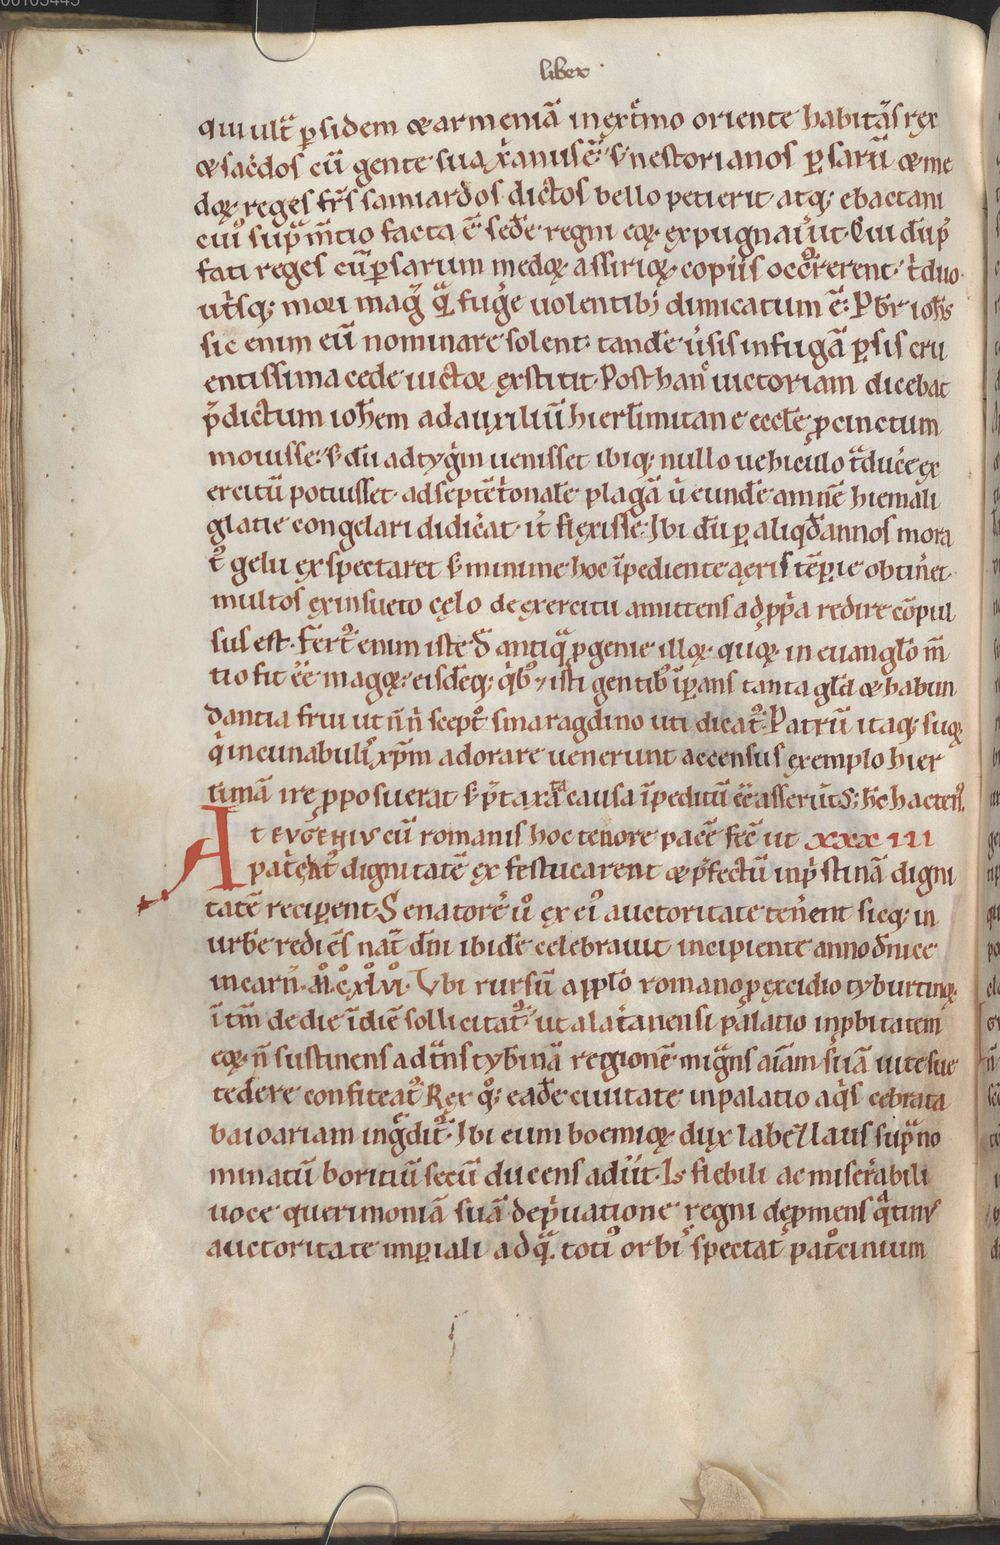 00105445
liber
qui ult̄ ꝑsidem ⁊ armeniā inext̄mo oriente habitās rex
⁊ sac̄dos cū gente sua xp̄anus ē· s; nestorianos ꝑsarū ⁊ me
doꝝ reges frs̄ samiardos dictos bello petierit atq; ebactani
cuiꝰ sup̄ m̄tio facta ē sedē regni eoꝝ expugnauit· Cui dū p̄
fati reges cū ꝑsarum medoꝝ assirioꝝ copiis occ̄rerent· t̄duo
ut̄sq; mori maḡ q̄ fuḡe uolentib; dimicatum ē· Pbr̄ iohs̄
sic enim eū nominare solent· tandē ūsis in fugā ꝑsis cru
entissima cede uictor exstitit· Post hanc uictoriam dicebat
p̄dictum iohem̄ ad auxiliū hierl̄imitane eccl̄e ꝓcinctum
mouisse· s; dū ad tyḡm uenisset ibiq; nullo uehiculo t̄duce̅ ex
ercitū potuisset· ad septēt̄onalē plagā ū eundē amnē hiemali
glacie congelari didic̄at it̄ flexisse· Ibi dū ꝑ aliqd̄ annos mora
t̄ gelu exspectaret s; minime hoc īpediente aeris tēꝑie obtin̄et·
multos ex insueto cęlo de exercitu amittens ad ppa̅ redire cōpul
sus est· Fert̄ enim iste d̄ antiq̄ ꝓgenie illoꝝ· quoꝝ in euanglō m̄
tio fit ēē magoꝝ· eisdēq; q̄bꝰ ⁊ isti gentibꝰ īꝑans tanta glā ⁊ habun
dantia frui ut n̄ n̄ scept̄ smaragdino uti dicat̄· Patrū itaq; suoꝝ
q̄ incunabulis xp̄m adorare uenerunt accensus exemplo hier
timā ire ꝓposuerat s; p̄taxata causa īpeditū ēē asserūt· S; hec hacten̄·
At EVGENIVS cū romanis hoc tenore pacē fec̄ ut XXXIIII
patciat̄ dignitatē exfestucarent ⁊ p̄fectū in p̄stinā digni
tatē reciꝑent· Senatores̄ ū ex eiꝰ auctoritate ten̄ent sicq; in
urbē rediēs nat̄ dn̄i ibidē celebrauit incipiente anno dn̄ice
incarn̄· M̊ C̊ XL VI· Vbi rursū a pp̄lo romano ꝓ excidio tyburtinoꝝ
ītm̄ de die ī diē sollicitat̄· ut a lat̄anensi palatio inp̄bitatem
eoꝝ n̄ sustinens ad t̄nstybinā regionē mig̅ns aīam suā uite sue
tedere confiteat̄· Rex q̊; eadē ciuitate in palatio aq̄s cebrata
baioariam ing̅dit̄· Ibi eum boemioꝝ dux labezlaus sup̄no
minatū boritiū secū ducens adiit· Is flebili ac miserabili
uoce querimoniā suā dep̄uatione regni dep̄mens q̄tinꝰ
auctoritate imꝑiali ad q̄ totiꝰ orbiꝰ spectat̄ pat̊cinium